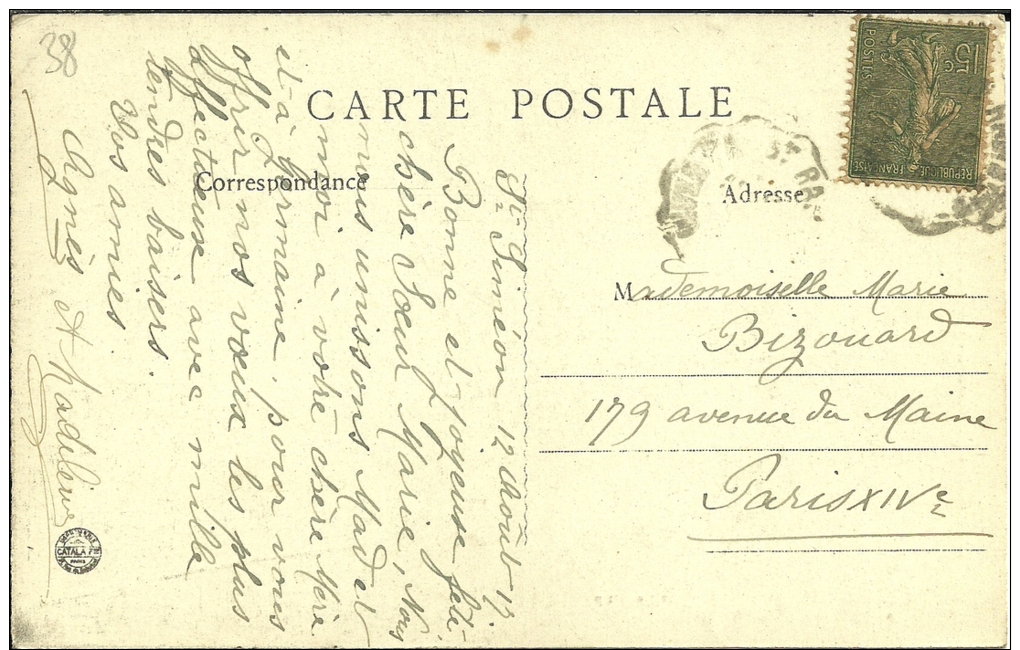 38
CARTE POSTALE
Correspondance
Adresse
POSTES
15c
REPUBLIQUE FRANÇAISE
St Siméon 12 Août 19
Bonne et joyeuse fête
chère Sœur Marie, Nous
nous unissons Mad et
moi à votre chère Mère
et à Germaine pour vous
offrir nos vœux les plus
affectueux avec mille
tendres baisers.
Vos amies
Agnès et Madeleine
Mademoiselle Marie
Bizouard
179 avenue du Maine
Paris XIVe
CATALA FRES
PARIS